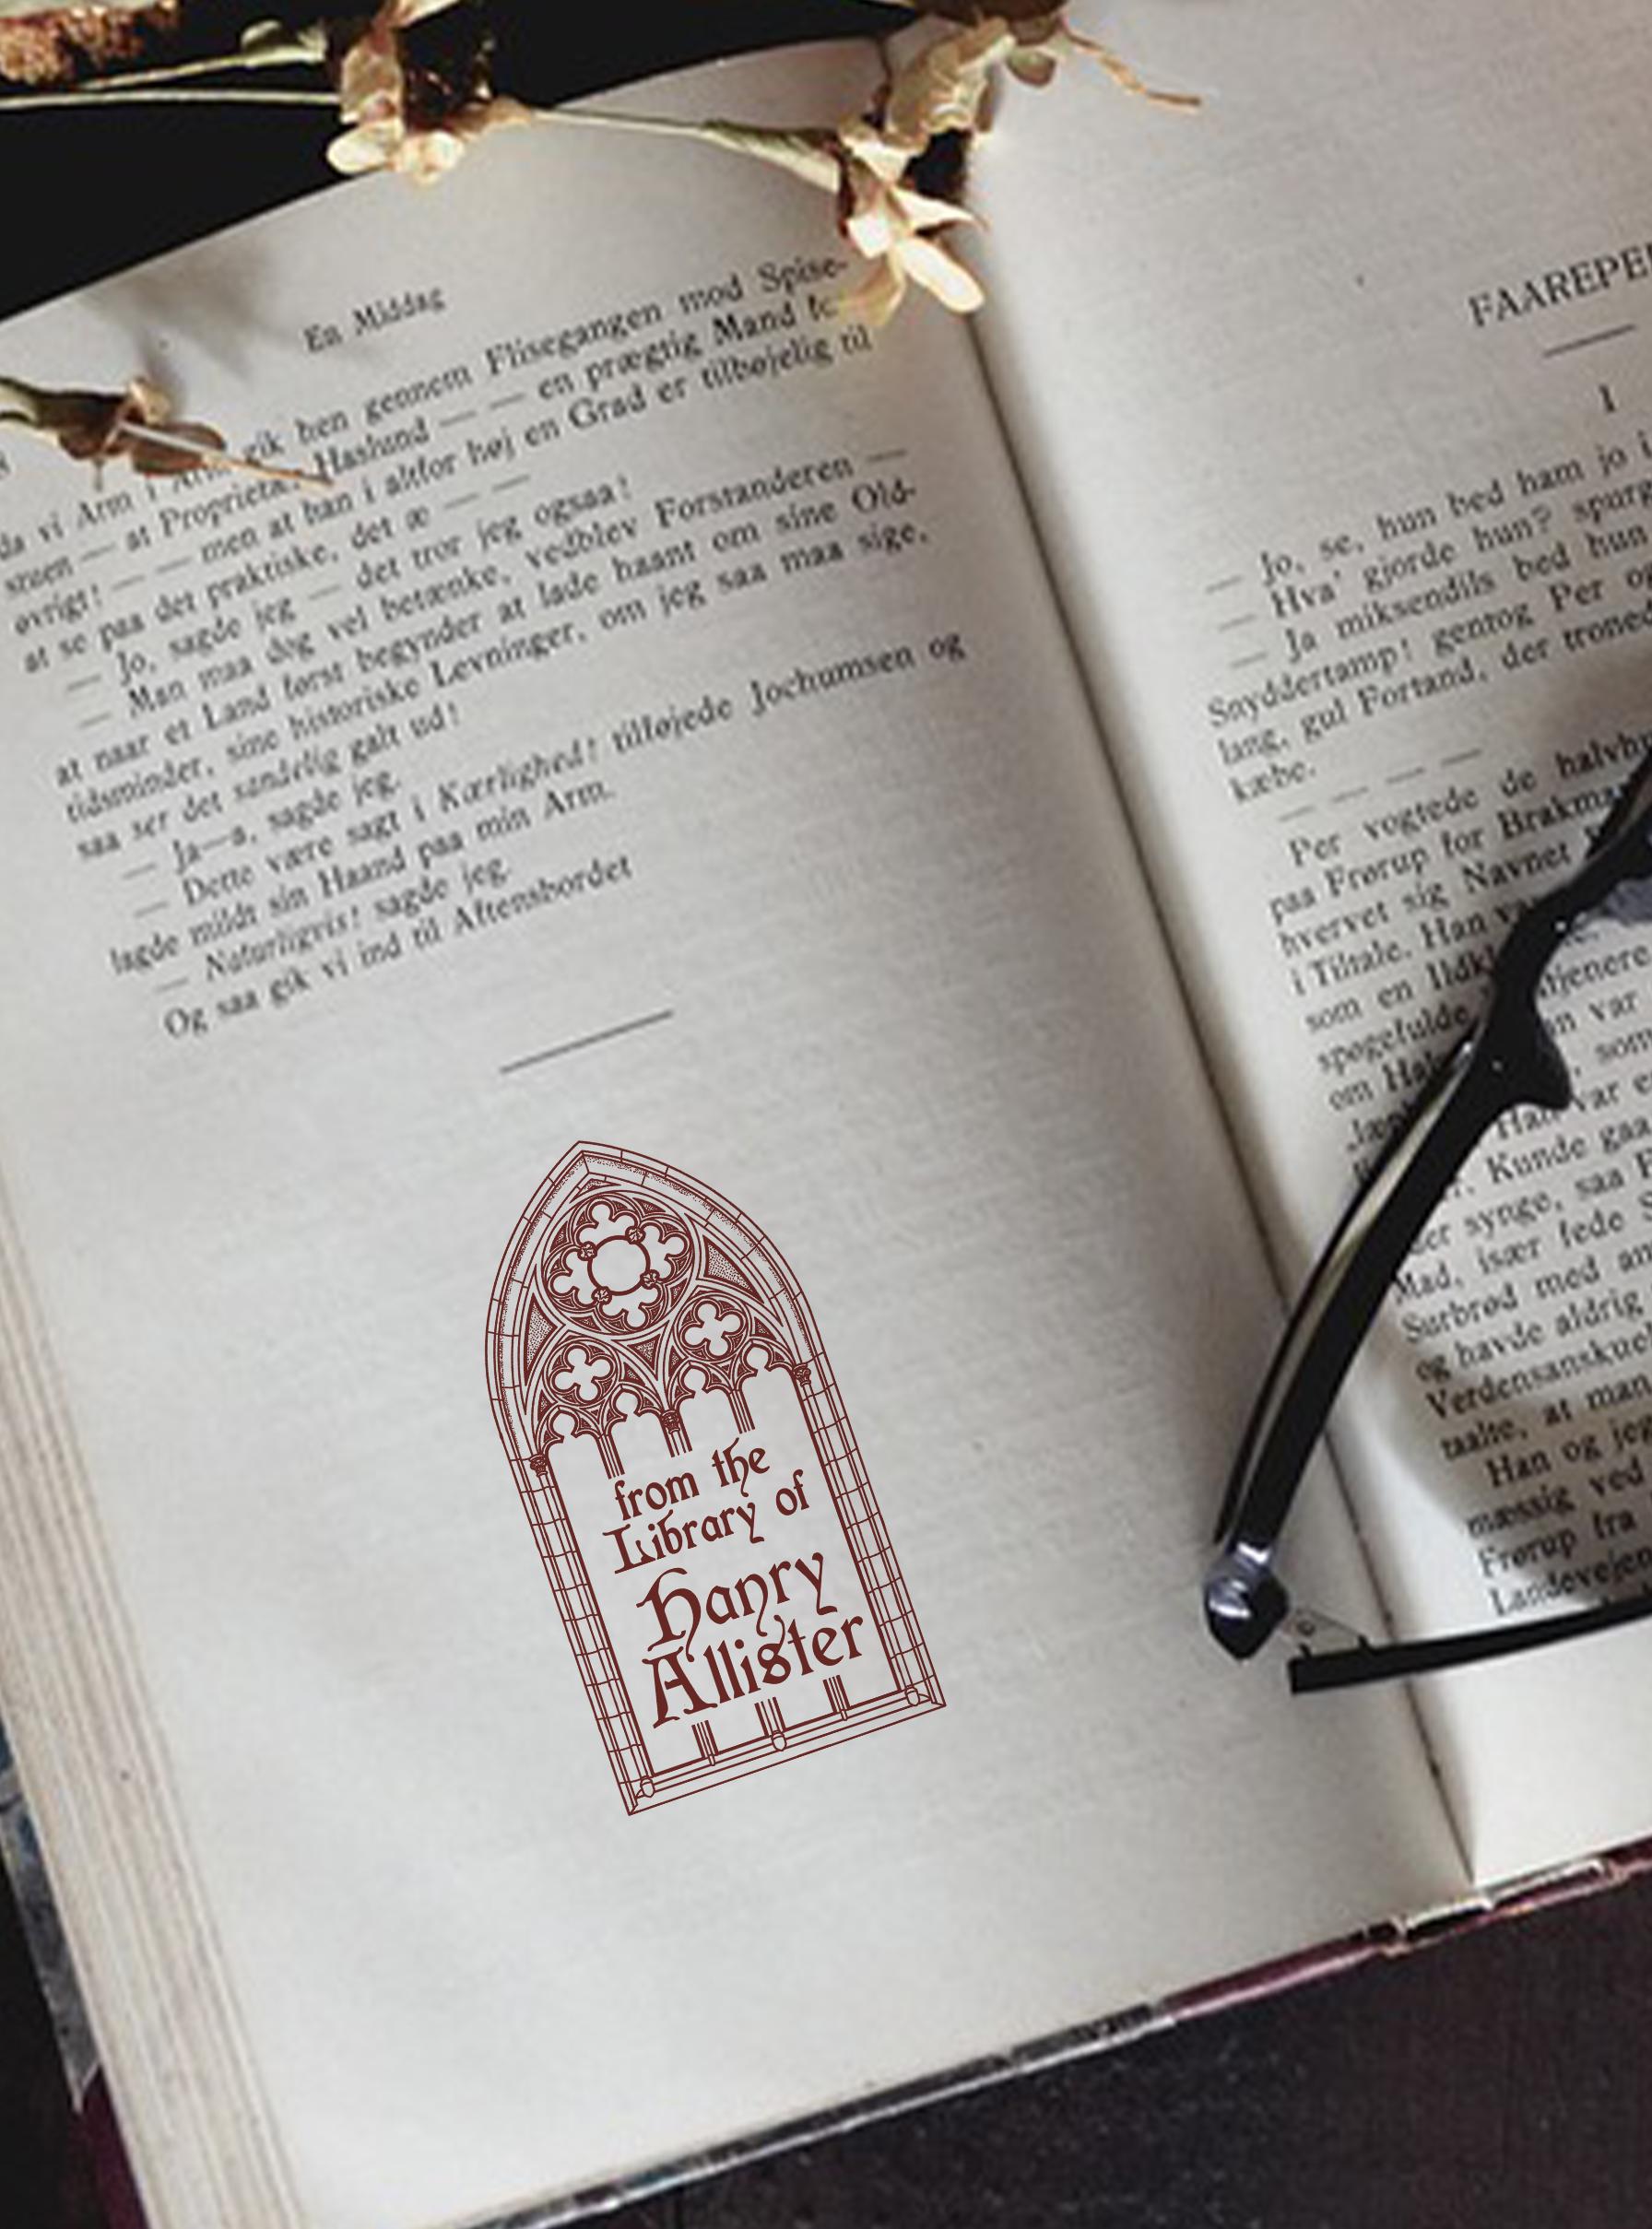 En Middag
da vi Arm i Arm gik hen gennem Flisegangen mod Spise-
stuen — at Proprietær Haslund — — en prægtig Mand
øvrigt! — — men at han i altfor høj en Grad er tilbøjelig til
at se paa det praktiske, det æ — —
— Jo, sagde jeg — det tror jeg ogsaa!
— Man maa dog vel betænke, vedblev Forstanderen —
at naar et Land først begynder at lade haant om sine Old-
tidsminder, sine historiske Levninger, om jeg saa maa sige,
saa ser det sandelig galt ud!
— Ja—a, sagde jeg.
— Dette være sagt i Kærlighed! tilføjede Jochumsen og
lagde mildt sin Haand paa min Arm.
— Naturligvis! sagde jeg.
Og saa gik vi ind til Aftensbordet
from the
Library of
Hanry
Allister
I
— Jo, se, hun bed ham jo i
— Hva' gjorde hun? spurg
— Ja miksendils bed hun
Snyddertamp! gentog Per og
lang, gul Fortand, der troned
kæbe.
— — — —
Per vogtede de halvhu
paa Frørup for Brakma
hvervet sig Navnet
i Tiltale. Han
som en
spøgefulde
om
var
som
Han var
Kunde gaa
synge, saa
Mad, især fede
Surbrød med
og havde aldrig
Verdensanskuel
taalte, at man
Han og jeg
mæssig ved
Frørup fra
Landevejen